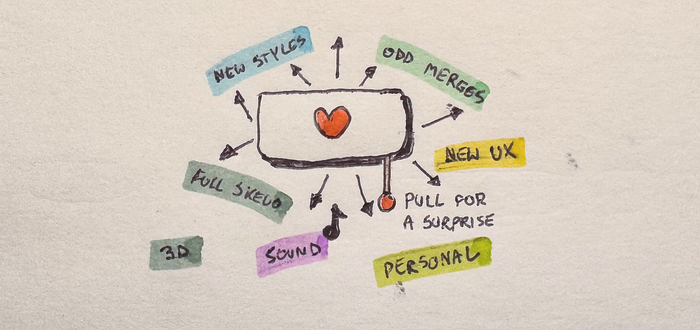 NEW STYLES
ODD MERGES
NEW UX
FULL SKEUO
PULL FOR
A SURPRISE
3D
SOUND
PERSONAL